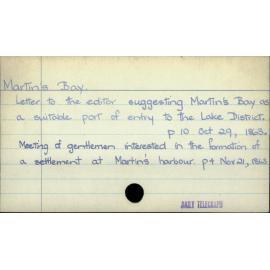 Martin's Bay.
Letter to the editor suggesting Martin's Bay as
a suitable port of entry to the Lake District.
p 10 Oct 29, 1863.
Meeting of gentlemen interested in the formation of
a settlement at Martin's harbour. p4 Nov 21, 1863
DAILY TELEGRAPH